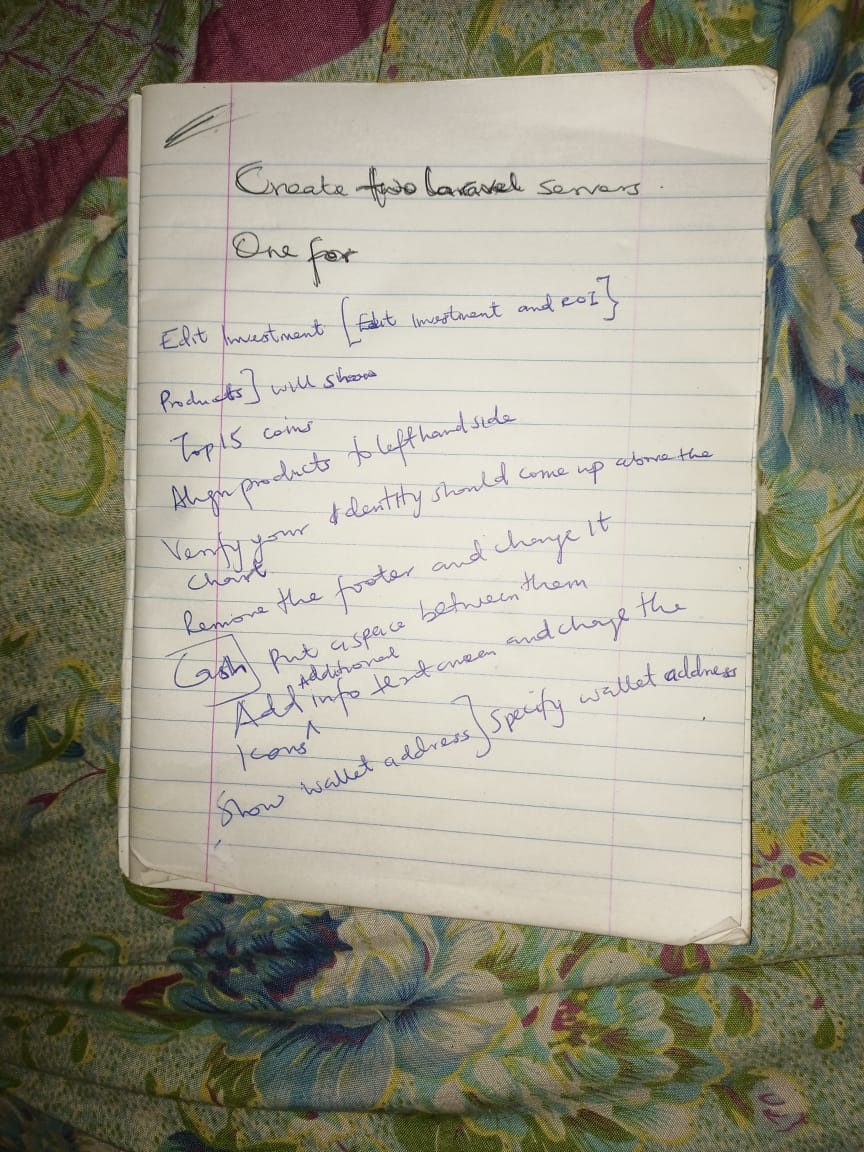 Create two laravel servers.
One for
Edit Investment [Edit Investment and ROI]
Products] will show
Top 15 coins
Align products to left hand side
Verify your Identity should come up above the
chart
Remove the footer and change it
Cash] Put a space between them
Additional
Add info text area and change the
Icons
Show wallet address] Specify wallet address